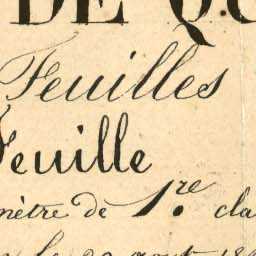 DE
Feuilles
Feuille
mètre de 1.re cla
le 20 aout 18